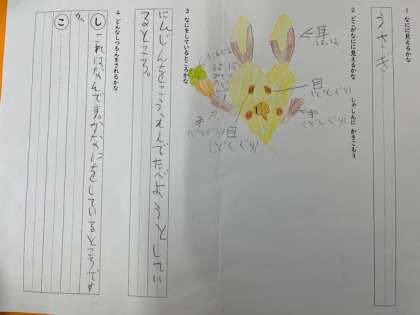 1 なにに見えるかな
うさぎ
2 どこがなにに見えるかな しゃしんに かきこもう
耳
はっぱ
目
(どんぐり)
手
(どんぐり)
目
(どんぐり)
にんじん
3 なにをしているところかな
にんじんをこうえんでたべようとしてい
るところ。
4 どんなしつもんをされるかな
し これはなんですか。なにをしているところです
か。
こ